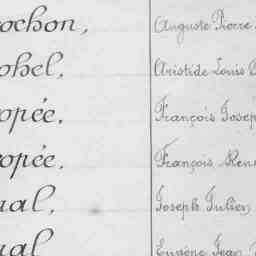 ochon, Auguste Pierre
ohel, Aristide Louis
opée, François Josep
opée, François Ren
ual, Joseph Julien
ual Eugène Jean